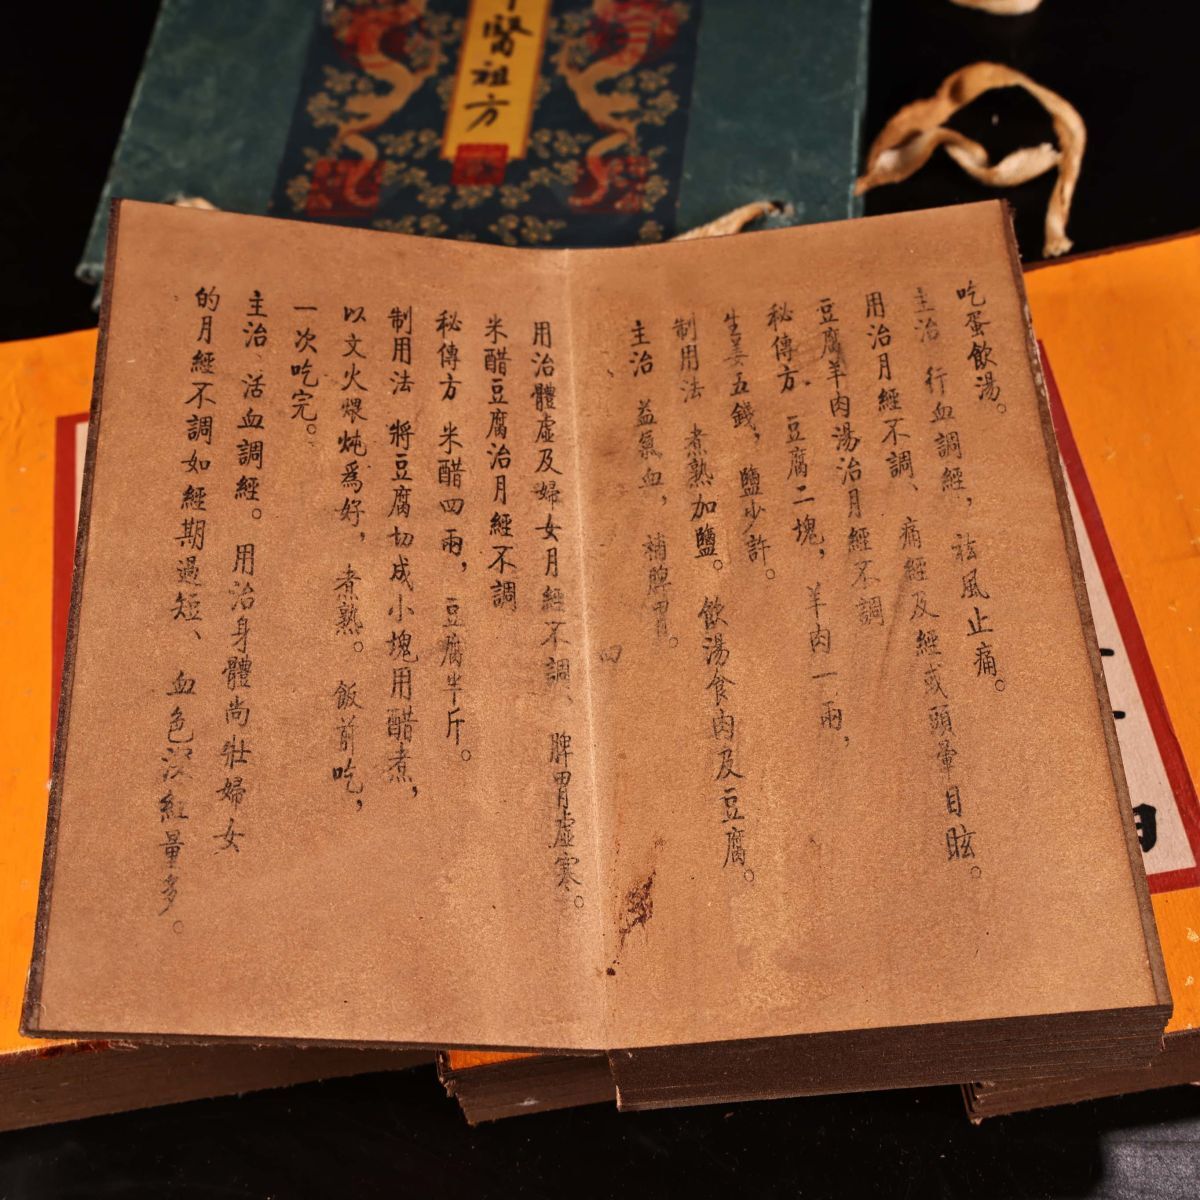 醫祖方
吃蛋飲湯。
主治 行血調經，祛風止痛。
用治月經不調、痛經及經或頭暈目眩。
豆腐羊肉湯治月經不調
秘傳方 豆腐二塊，羊肉一兩，
生姜五錢，鹽少許。
制用法 煮熟加鹽。飲湯食肉及豆腐。
主治 益氣血，補脾胃。
用治體虛及婦女月經不調、脾胃虛寒。
米醋豆腐治月經不調
秘傳方 米醋四兩，豆腐半斤。
制用法 將豆腐切成小塊用醋煮，
以文火煨炖爲好，煮熟。飯前吃，
一次吃完。
主治 活血調經。用治身體尚壯婦女
的月經不調如經期過短、血色深紅量多。
四